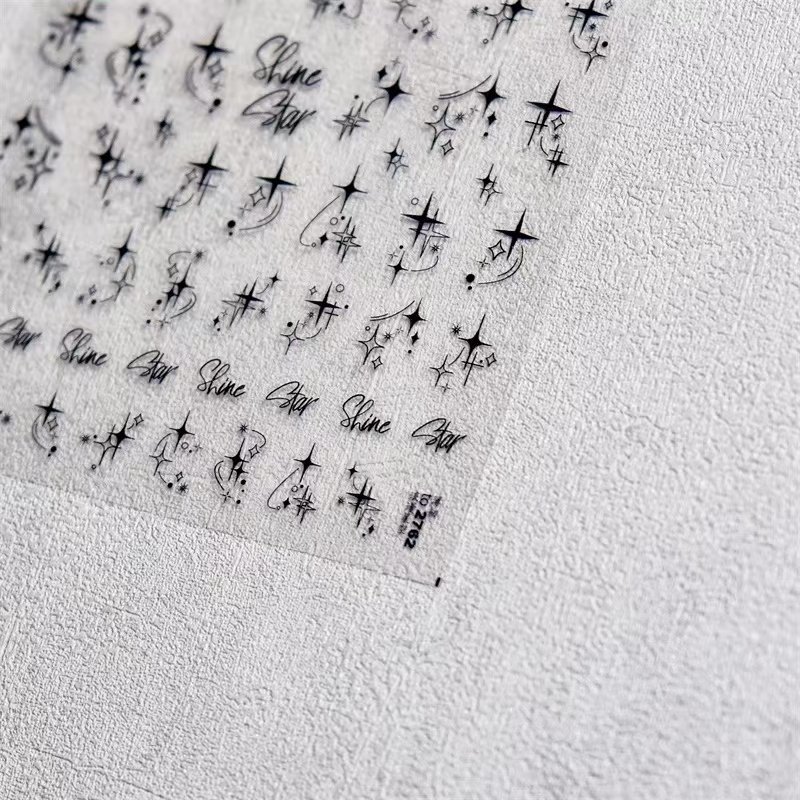 Shine
Star
Star Shine Star Shine Star Shine Star
TO 2762